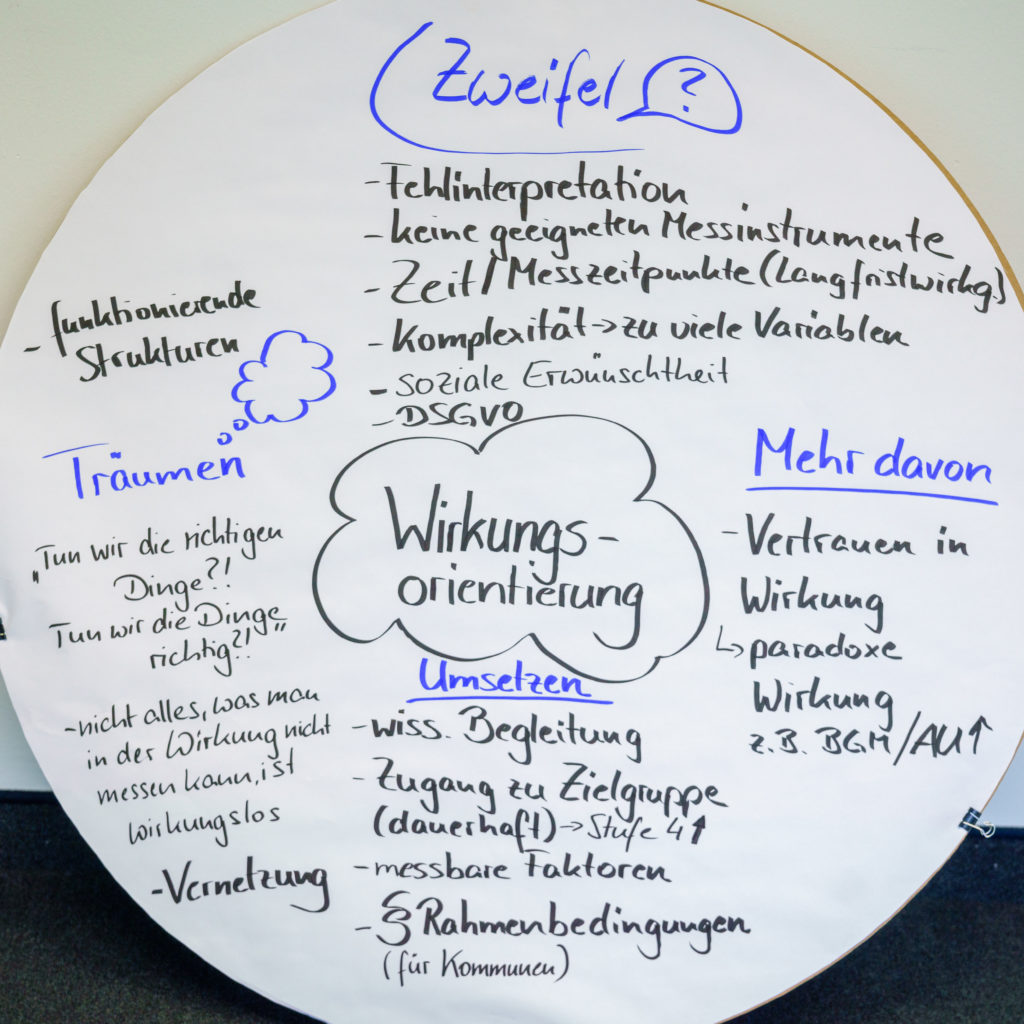 Zweifel ?
- Fehlinterpretation
- keine geeigneten Messinstrumente
- Zeit/Messzeitpunkte (Langfristwirkg.)
- Komplexität → zu viele Variablen
- soziale Erwünschtheit
- DSGVO
- funktionierende
Strukturen
Träumen
„Tun wir die richtigen
Dinge?!
Tun wir die Dinge
richtig?!"
- nicht alles, was man
in der Wirkung nicht
messen kann, ist
wirkungslos
- Vernetzung
Wirkungs-
orientierung
Mehr davon
- Vertrauen in
Wirkung
↳ paradoxe
Wirkung
z.B. BGM/AU↑
Umsetzen
- wiss. Begleitung
- Zugang zu Zielgruppe
(dauerhaft) → Stufe 4↑
- messbare Faktoren
- § Rahmenbedingungen
(für Kommunen)